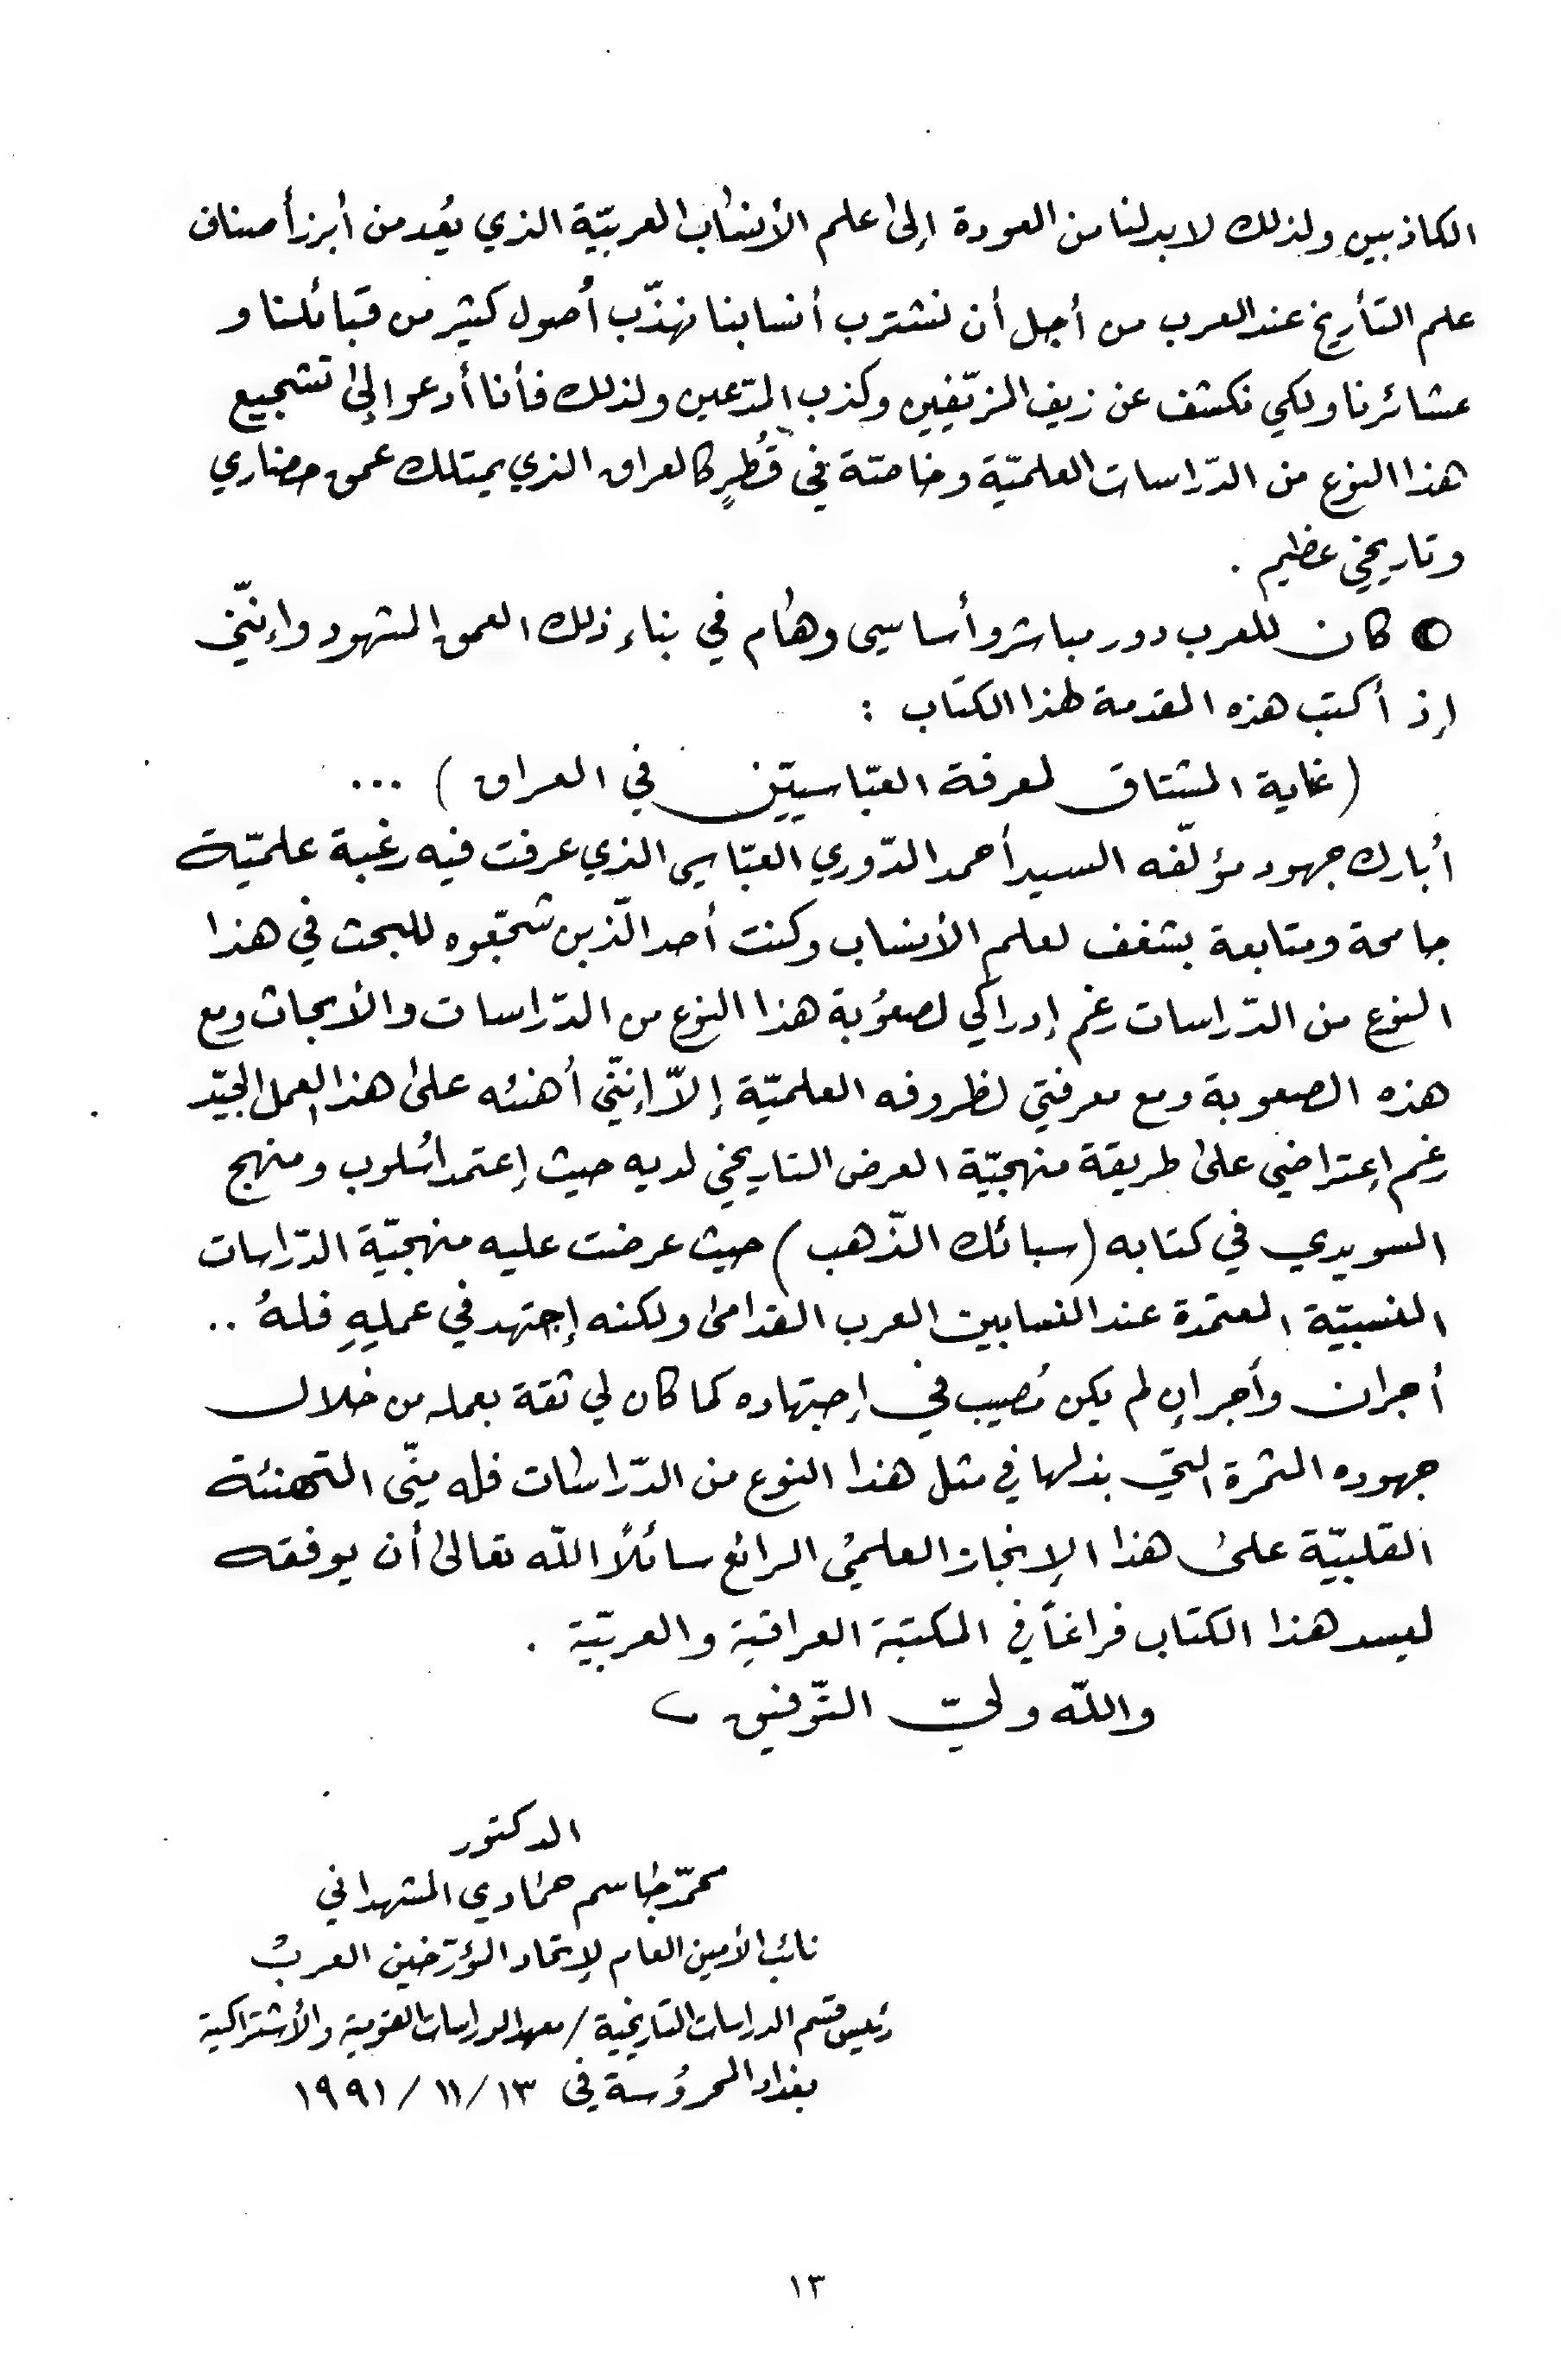 الكاذبين ولذلك لابد لنا من العودة إلى علم الأنساب العربيّة الذي يُعد من أبرز أصناف
علم التأريخ عند العرب من أجل أن نشترب أنسابنا نهذّب أصول كثير من قبائلنا و
عشائرنا ولكي نكشف عن زيف المزيّفين وكذب المدّعين ولذلك فأنا أدعوا إلى تشجيع
هذا النوع من الدّراسات العلميّة وخاصّة في قُطرٍ كالعراق الذي يمتلك عمق حضاري
وتاريخي عظيم .
كان للعرب دور مباشر وأساسي وهام في بناء ذلك العمق المشهود وإنّني
إذ أكتب هذه المقدمة لهذا الكتاب :
( غاية المشتاق لمعرفة العبّاسيّين في العراق ) ...
أُبارك جهود مؤلّفه السيد أحمد الدّوري العبّاسي الذي عرفت فيه رغبة علميّة
جامحة ومتابعة بشغف لعلم الأنساب وكنت أحد الّذين شجّعوه للبحث في هذا
النوع من الدّراسات رغم إدراكي لصعُوبة هذا النوع من الدّراسات والأبحاث ومع
هذه الصعوبة ومع معرفتي لظروفه العلميّة إلاّ إنّني أُهنئه على هذا العمل الجيّد
رغم إعتراضي على طريقة منهجيّة العرض التاريخي لديه حيث إعتمد أُسلوب ومنهج
السويدي في كتابه ( سبائك الذّهب ) حيث عرضت عليه منهجيّة الدّراسات
النسبيّة المعتمدة عند النسابين العرب القدامى ولكنه إجتهد في عملِهِ فلهُ ..
أجران وأجر إن لم يكن مُصيب في إجتهاده كما كان لي ثقة بعمله من خلال
جهوده المثمرة التي بذلها في مثل هذا النوع من الدّراسات فله منّي التهنئة
القلبيّة على هذا الإنجاز العلمي الرائع سائلاً اللّه تعالى أن يوفقه
ليسد هذا الكتاب فراغاً في المكتبة العراقية والعربيّة .
واللّه وليّ التّوفيق
الدكتور
محمّد جاسم حمادي المشهداني
نائب الأمين العام لإتحاد المؤرّخين العرب
رئيس قسم الدراسات التاريخية / معهد الدراسات القومية والأشتراكية
بغداد المحروُسة في ١٣ / ١١ / ١٩٩١
١٣